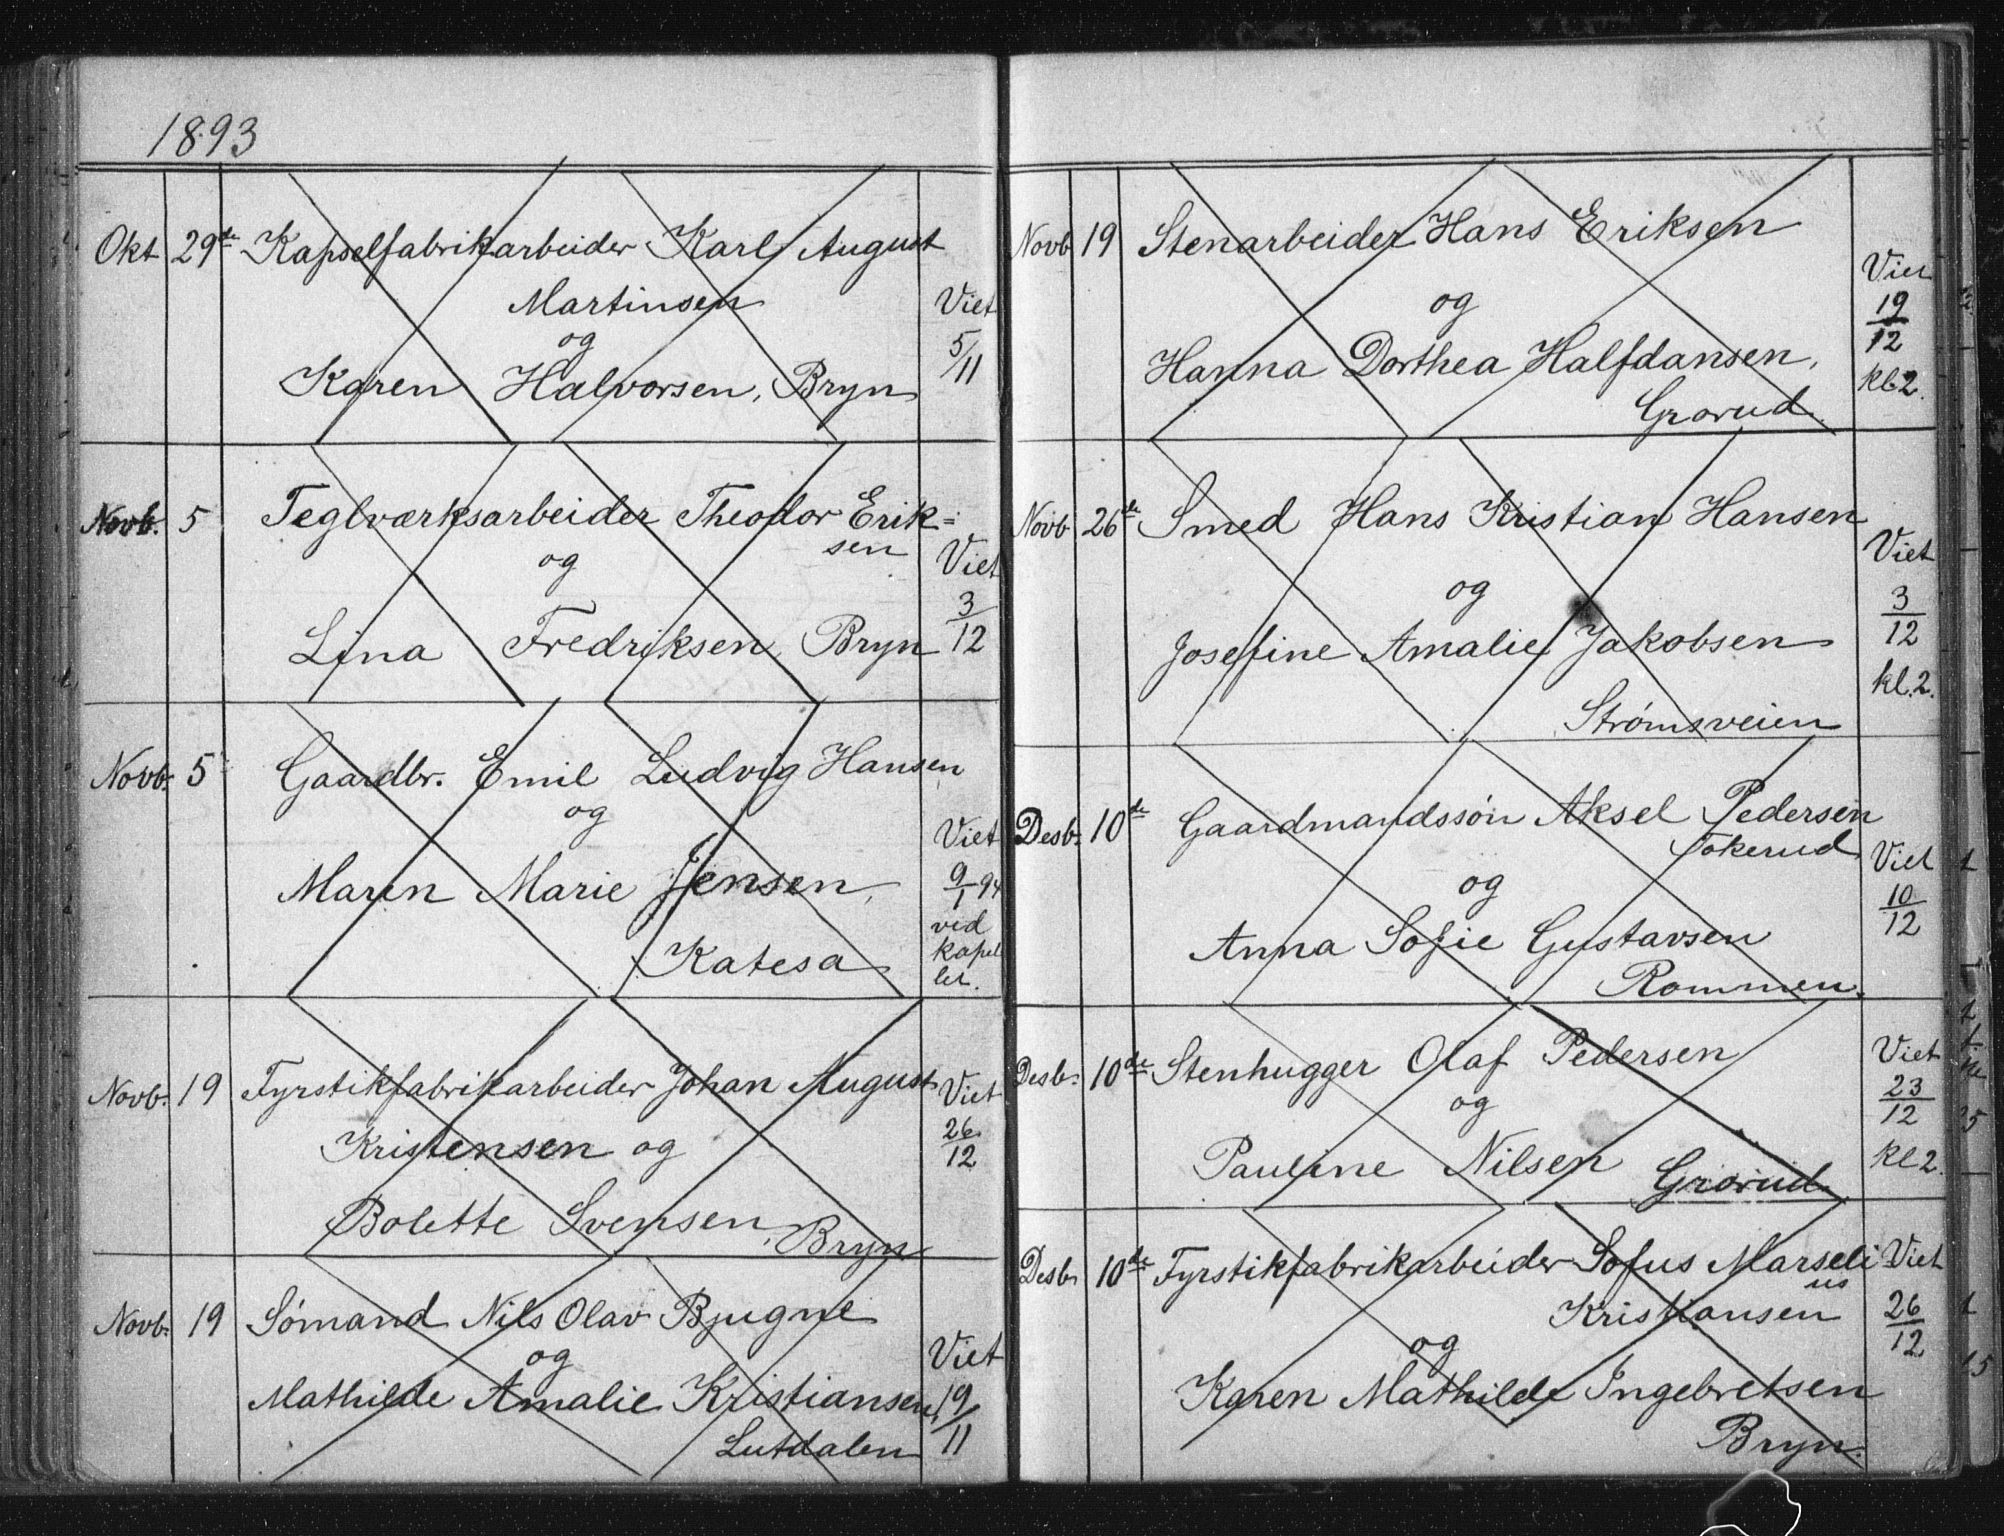 1893
Okt 29de Kapselfabrikarbeider Karl August
Martinsen
og
Karen Halvorsen, Bryn
Viet
5/11
Novb. 5 Teglværksarbeider Theodor Erik=
sen
og
Lina Fredriksen, Bryn
Viet
3/12
Novb. 5 Gaardbr. Emil Ludvig Hansen
og
Maren Marie Jensen,
Katesa
Viet
9/1 94
ved
kapel
let.
Novb. 19 Fyrstikfabrikarbeider Johan August
Kristensen og
Bolette Svensen, Bryn
Viet
26/12
Novb. 19 Sømand Nils Olav Bjugne
og
Mathilde Amalie Kristiansen,
Lutdalen
Viet
19/11
Novb 19 Stenarbeider Hans Eriksen
og
Hanna Dorthea Halfdansen,
Grorud.
Viet
19/12
kl. 2.
Novb 26de Smed Hans Kristian Hansen
og
Josefine Amalie Jakobsen
Strømsveien
Viet
3/12
kl. 2.
Desb. 10de Gaardmandssøn Aksel Pedersen
Tokerud
og
Anna Sofie Gustavsen
Rommen.
Viet
10/12
Desb. 10de Stenhugger Olaf Pedersen
og
Pauline Nilsen Grorud.
Viet
23/12
kl 2.
Desb. 10de Fyrstikfabrikarbeider Sofus Marseli
us
Kristiansen
og
Karen Mathilde Ingebretsen
Bryn.
Viet
26/12